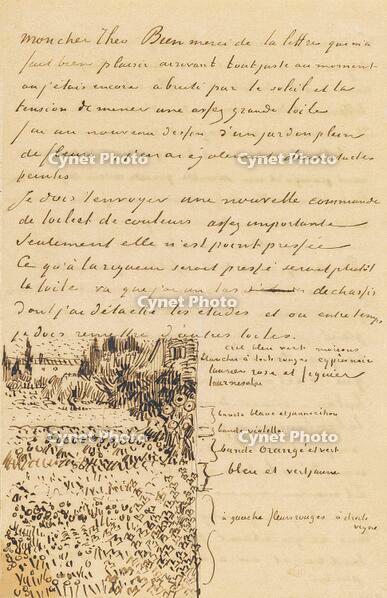 mon cher Theo Bien merci de ta lettre qui m'a
fait bien plaisir arrivant tout juste au moment
où j'étais encore abruti par le soleil et la
tension de mener une assez grande toile
J'ai un nouveau dessin d'un jardin plein
de fleurs j'en ai également deux études
peintes
Cynet Photo Cynet Photo
Je dois t'envoyer une nouvelle commande
de toile et de couleurs assez importante
Seulement elle n'est point pressée
Ce qu'à la rigueur serait pressé serait plutôt
la toile vu que j'ai un tas de chassis
Cynet Photo
dont j'ai détaché les études et où entretemps
je dois remettre d'autres toiles.
ciel bleu vert maisons
blanches à toits rouges cyprès noir
Cynet Photo Cynet Photo
laurier rose et figuier
tournesols
bande blanc et jaune citron
bande violette
Cynet Photo Cynet Photo
bande orange et vert
bleu et vert jaune
à gauche fleurs rouges à droite
vigne
Cynet Photo Cynet Photo